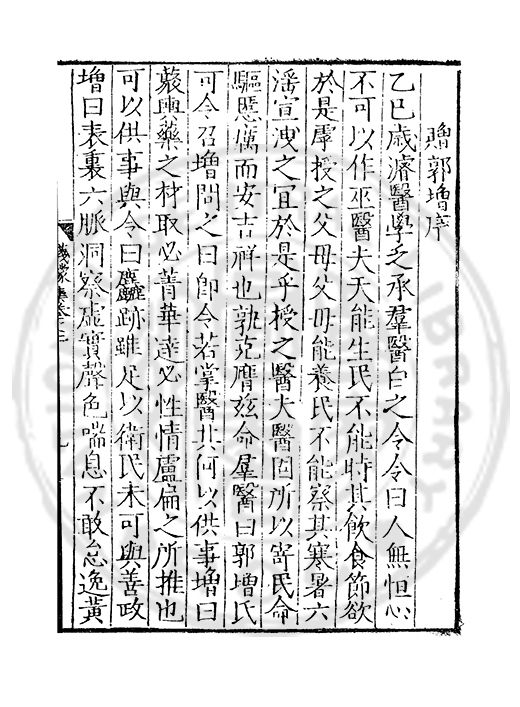 贈郭增序
乙巳歲濬醫學乏承羣醫白之令令曰人無恒心
不可以作巫醫夫天能生民不能時其飲食節欲
於是虖授之父母父母能養民不能察其寒暑六
滛宣洩之宜於是乎授之醫夫醫固所以寄民命
驅慝癘而安吉祥也孰克膺兹命羣醫曰郭增氏
可令召增問之曰卽令若掌醫其何以供事增曰
藂輿藥之材取必菁華達必性情盧扁之所推也
可以供事與令曰麤跡雖足以衛民未可與善政
增曰表裏六脈洞察虛實聲色喘息不敢怠逸黃